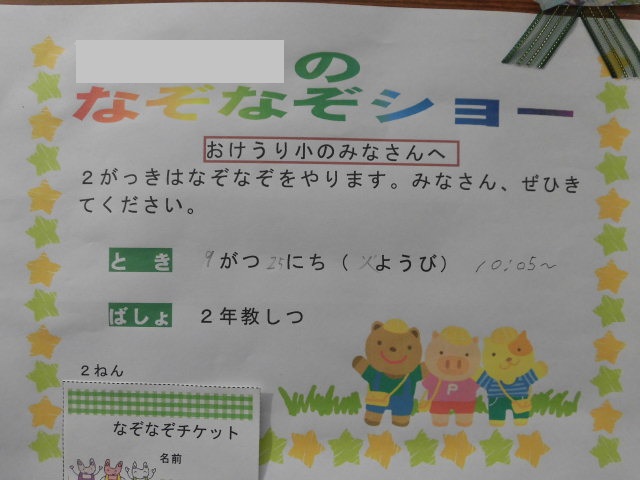 の
なぞなぞショー
おけうり小のみなさんへ
２がっきはなぞなぞをやります。みなさん、ぜひき
てください。
とき ９がつ25にち（火ようび） 10:05～
ばしょ ２年教しつ
２ねん
P
なぞなぞチケット
名前